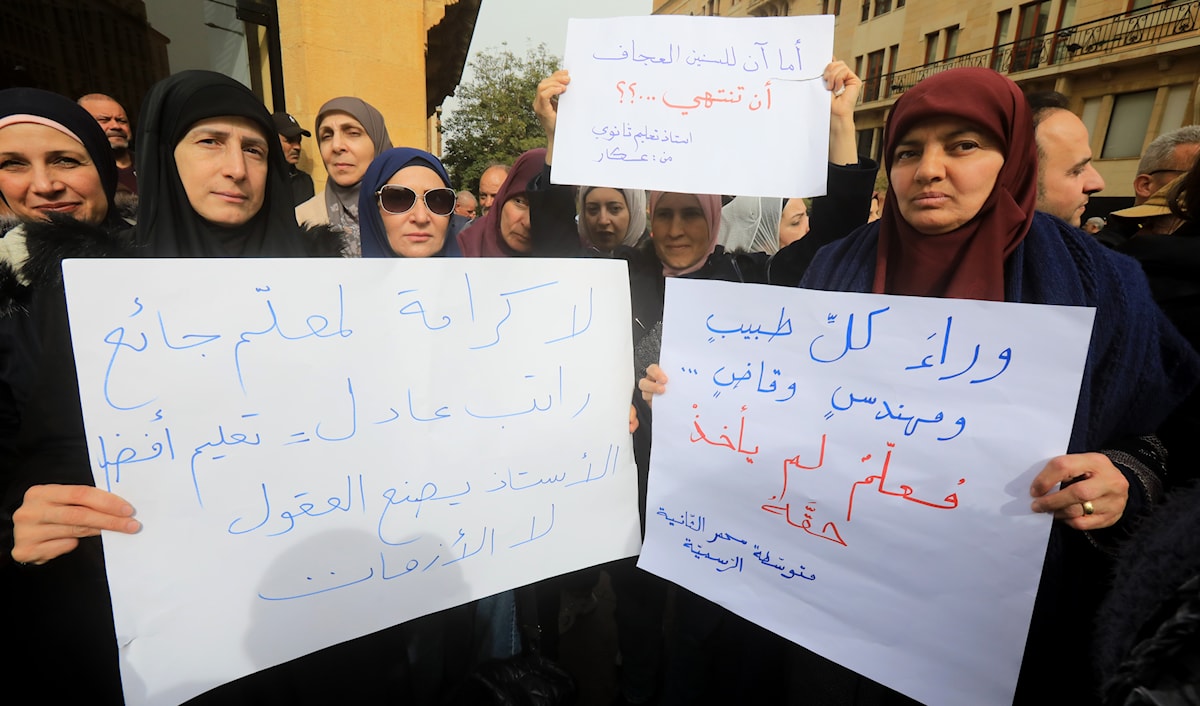 أما آن للسنين العجاف
أن تنتهي ...؟؟
استاذ تعليم ثانوي
من: عكار
لا كرامة لمعلّم جائع
راتب عادل = تعليم أفضل
الأستاذ يصنع العقول
لا الأزمات
وراءَ كلِّ طبيبٍ
ومهندسٍ وقاضٍ ...
مُعلّمٌ لم يأخذْ
حقَّهُ
متوسّطة الثانية
الرّسميّة